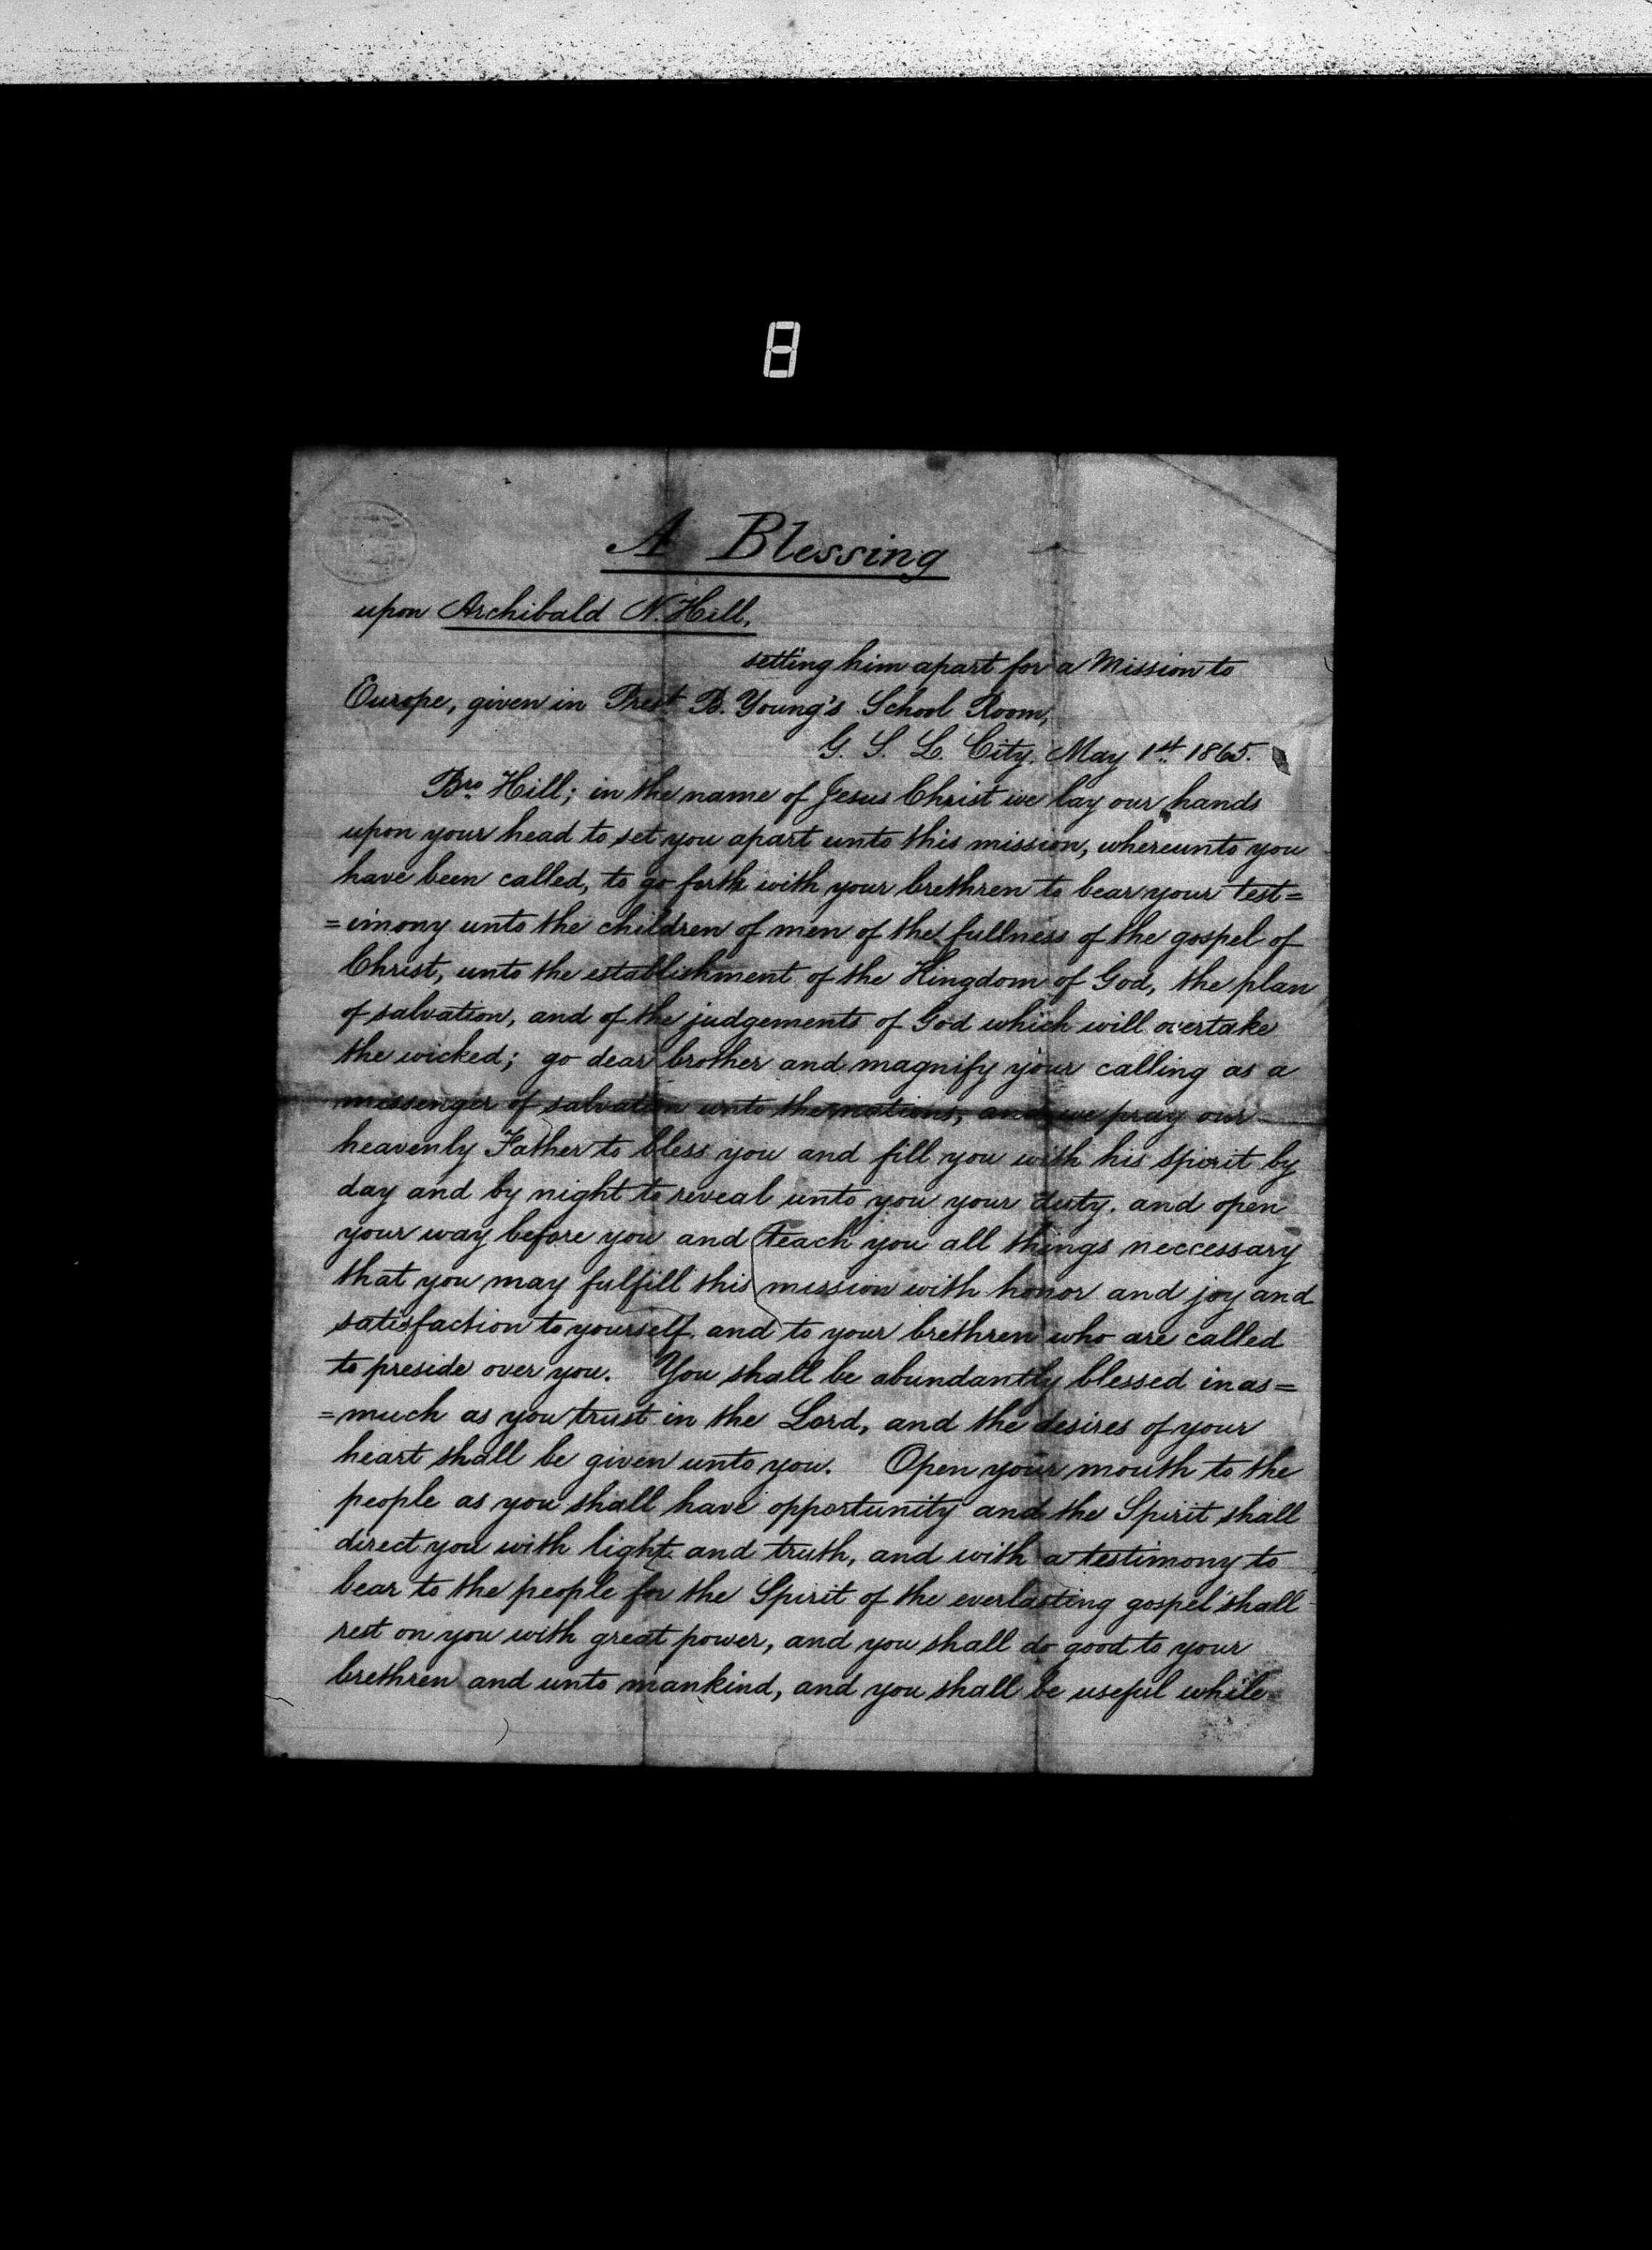 8
A Blessing
upon Archibald N. Hill,
setting him apart for a Mission to
Europe, given in Prest. B. Young's School Room,
G. S. L. City, May 1st. 1865.
Bro. Hill; in the name of Jesus Christ we lay our hands
upon your head to set you apart unto this mission, whereunto you
have been called, to go forth with your brethren to bear your test=
=imony unto the children of men of the fullness of the gospel of
Christ, unto the establishment of the Kingdom of God, the plan
of salvation, and of the judgements of God which will overtake
the wicked; go dear brother and magnify your calling as a
messenger of salvation unto the nations, and we pray our
heavenly Father to bless you and fill you with his spirit by
day and by night to reveal unto you your duty. and open
your way before you and teach you all things neccessary
that you may fulfill this mission with honor and joy and
satisfaction to yourself. and to your brethren who are called
to preside over you. You shall be abundantly blessed inas=
=much as you trust in the Lord, and the desires of your
heart shall be given unto you. Open your mouth to the
people as you shall have opportunity and the Spirit shall
direct you with light and truth, and with a testimony to
bear to the people for the Spirit of the everlasting gospel shall
rest on you with great power, and you shall do good to your
brethren and unto mankind, and you shall be useful while